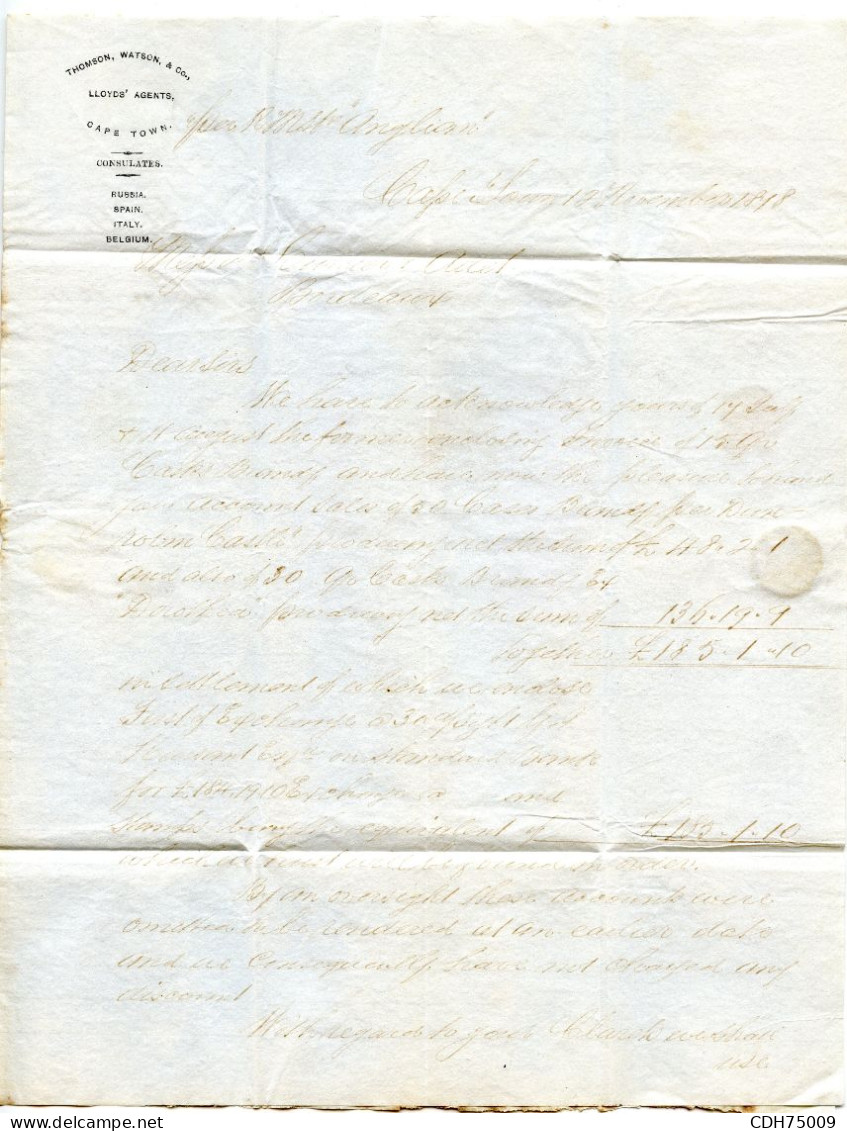 THOMSON, WATSON, & Co.,
LLOYDS' AGENTS,
CAPE TOWN.
CONSULATES.
RUSSIA.
SPAIN.
ITALY.
BELGIUM.
per R M Str "Anglian"
Cape Town 12 November 1878
Bordeaux
Dear Sirs
We have to acknowledge yours of 17 July
& 11 August the former enclosing Invoice of 15 Qr
Casks Brandy and have now the pleasure to hand
you Account Sales of 20 Cases Brandy per "Dun
robin Castle" producing net the sum of £ 48.2.1
and also of 30 Qr Casks Brandy Ex
"Dorothea" producing net the sum of 136.19.9
together £185.1.10
in settlement of which we enclose
First of Exchange @ 30 d/sight
Esqre on Standard Bank
for £184.19.10 Exchange @ and
stamps being the equivalent of £185.1.10
which amount will be found in order.
By an oversight these accounts were
omitted to be rendered at an earlier date
and we consequently have not charged any
discount
With regard to your Claret we shall
use
CDH75009